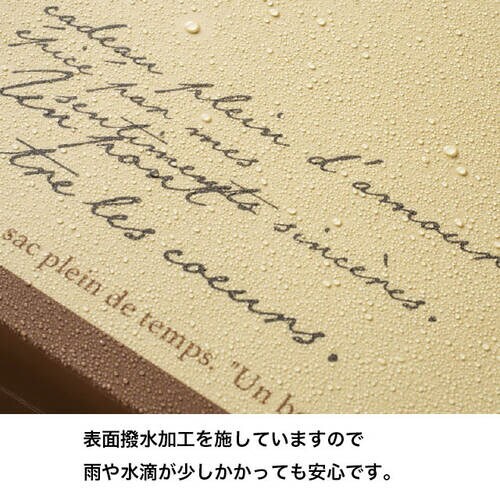 cadeau plein d'amour
épice par mes
sentiments sincères.
tre les coeurs.
sac plein de temps. "Un b
表面撥水加工を施していますので
雨や水滴が少しかかっても安心です。